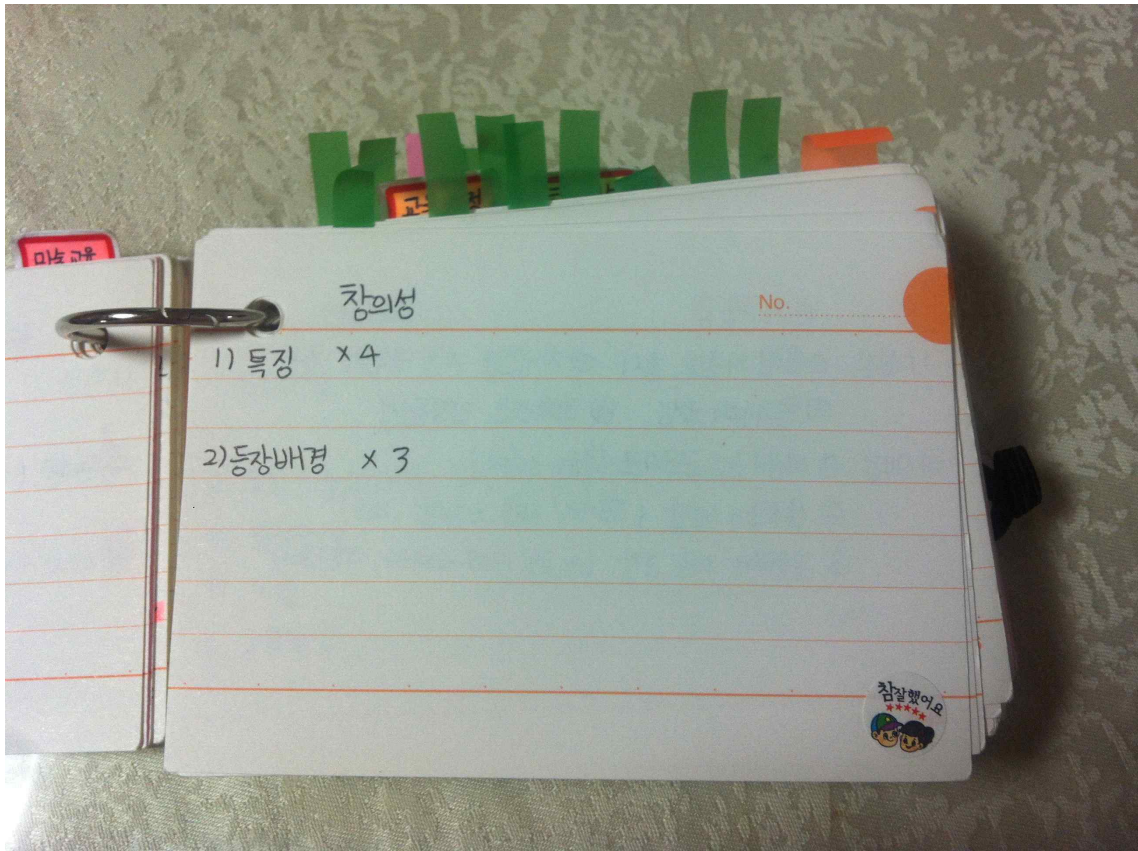 창의성
No.
1) 특징 × 4
2) 등장배경 × 3
참잘했어요